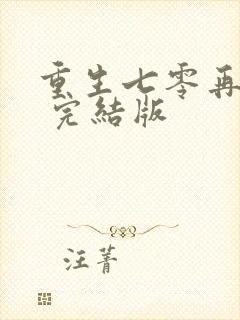 重生七零再
完結版
汪菁